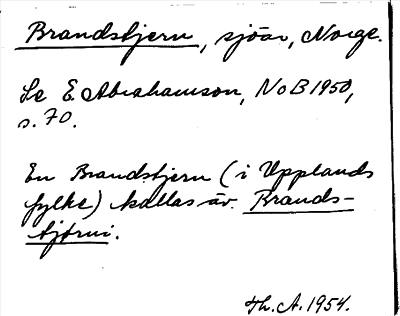 Brandstjern, sjöar, Norge.
Se E. Abrahamson, NoB 1950,
s. 70.
En Brandstjern (i Upplands
fylke) kallas äv. Brands-
tjørni.
Th. A. 1954.